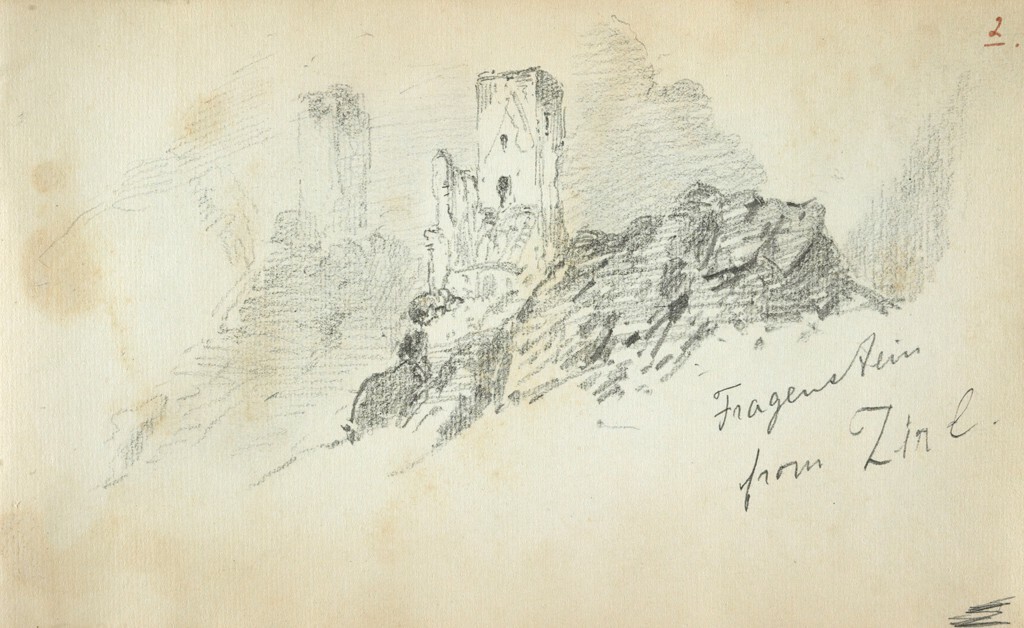 2.
Fragenstein
from Zirl.